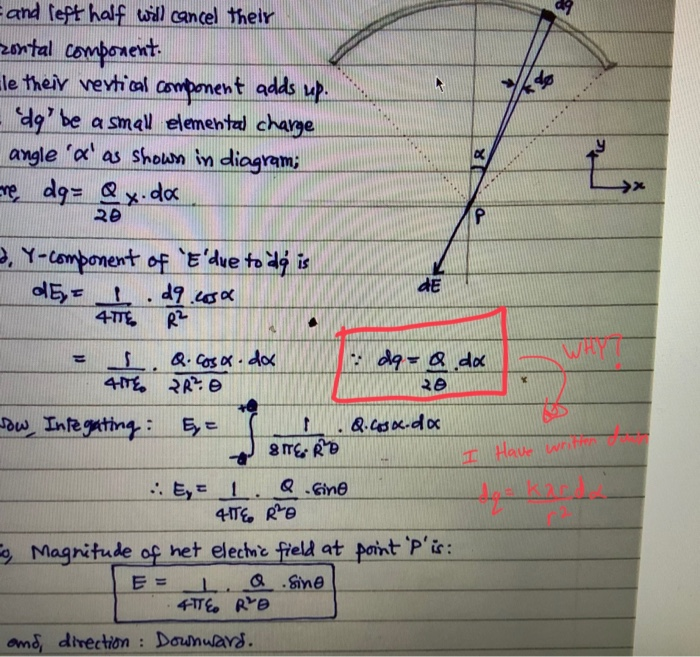 and left half will cancel their
zontal component.
le their vertical component adds up.
'dq' be a small elemental charge
angle 'α' as shown in diagram;
re, dq = Q/2θ x. dα
, Y-component of 'E' due to 'dq' is
dEy = 1/4πε₀ . dq.cosα/R²
= 1/4πε₀ . Q.cosα.dα/2R².θ
∵ dq = Q/2θ .dα
WHY?
Now, Integating : Ey = ∫ -θ +θ 1/8πε₀.R²θ . Q.cosα.dα
I Have written down
∴ Ey = 1/4πε₀ . Q/R²θ .sinθ
dq = kλrdα/r²
so, Magnitude of net electric field at point 'P' is:
E = 1/4πε₀ . Q/R²θ .sinθ
and, direction : Downward.
dq
dø
α
P
dE
y
x